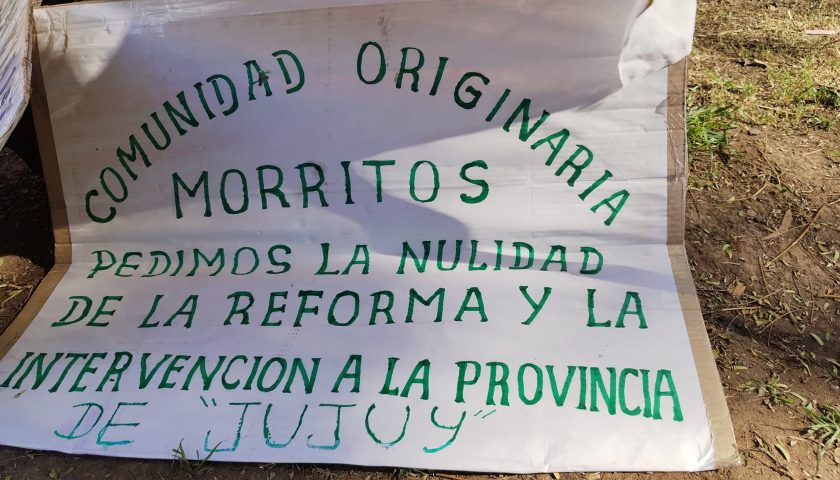 COMUNIDAD ORIGINARIA
MORRITOS
PEDIMOS LA NULIDAD
DE LA REFORMA Y LA
INTERVENCION A LA PROVINCIA
DE "JUJUY"